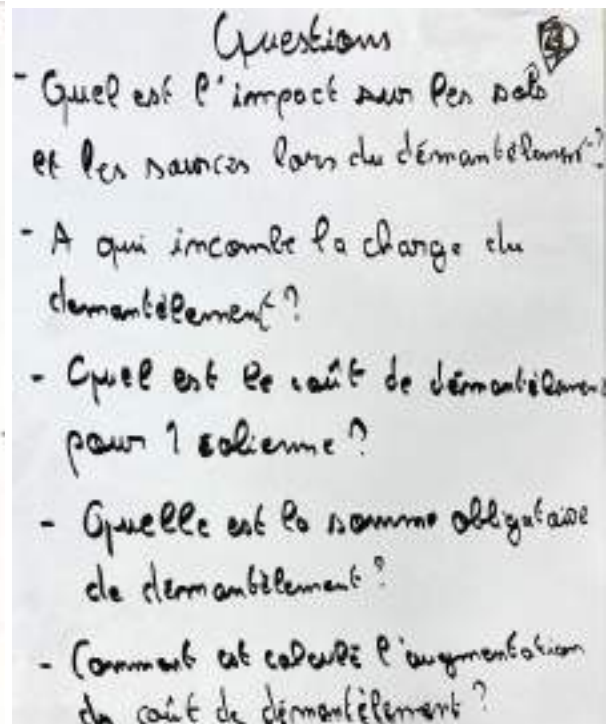 Questions
- Quel est l'impact sur les sols
et les sources lors du démantèlement?
- A qui incombe la charge du
demantèlement?
- Quel est le coût de démantèlement
pour 1 eolienne?
- Quelle est la somme obligatoire
de démantèlement?
- Comment est calculé l'augmentation
du coût de démantèlement?